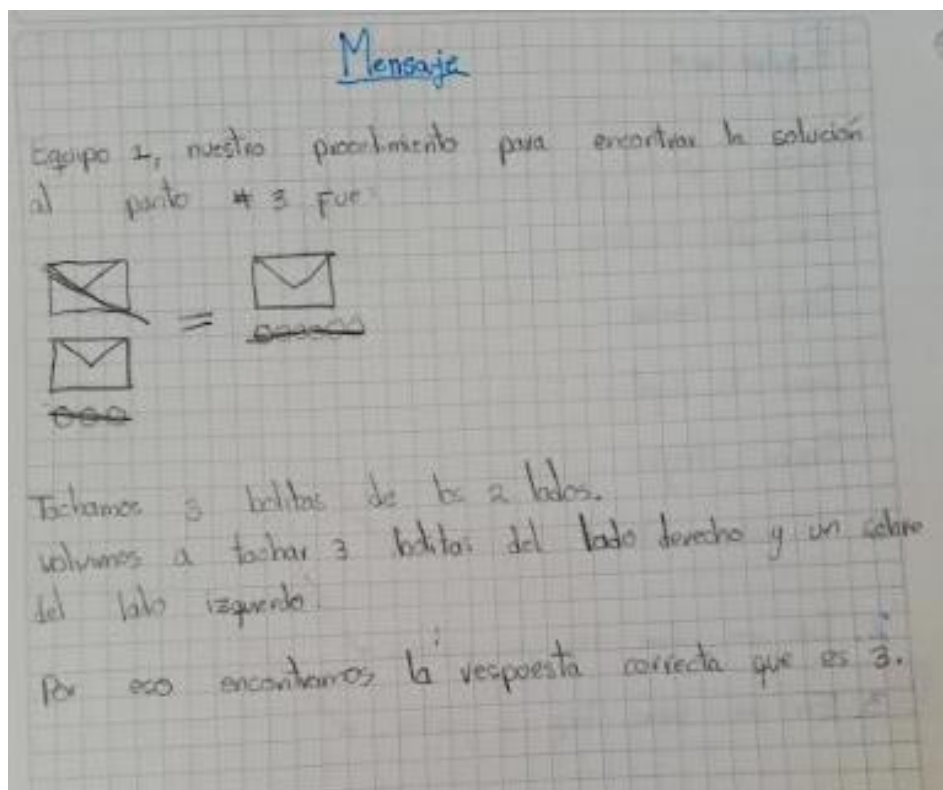 Mensaje
Equipo 1, nuestro procedimiento para encontrar la solución
al punto # 3 Fue:
=
Tachamos 3 bolitas de los 2 lados.
volvimos a tachar 3 bolitas del lado derecho y un sobre
del lado izquierdo.
Por eso encontramos la respuesta correcta que es 3.